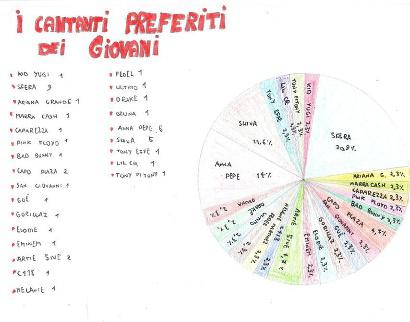 I CANTANTI PREFERITI
DEI GIOVANI
KID YUGI 1
SFERA 9
ARIANA GRANDE 1
MARRA CASH 1
CAPAREZZA 1
PINK FLOYD 1
BAD BUNNY 1
CAPO PLAZA 2
SAN GIOVANNI 1
GUÈ 1
GORILLAZ 1
ELODIE 1
EMINEM 1
ARTIE 5IVE 2
MELANIE 1
FEDEZ 1
ULTIMO 1
DRAKE 1
GEUNA 1
ANNA PEPE 6
SHIVA 5
TONY EFFE 1
LIL CR 1
TONY PITONY 1
KID YUGI 2,3%
SFERA
20,8%
ARIANA G. 2,3%
MARRA CASH 2,3%
CAPAREZZA 2,3%
PINK FLOYD 2,3%
BAD BUNNY 2,3%
CAPO PLAZA 4,3%
GIOVANNI 2,3%
GUÈ 2,3%
GORILLAZ 2,3%
ELODIE 2,3%
EMINEM 2,3%
ARTIE 5IVE 4,3%
2,3%
2,3%
DRAKE 2,3%
2,3%
ANNA
PEPE 14%
SHIVA
11,6%
TONY EFFE 2,3%
LIL CR 2,3%
TONY PITONY 2,3%